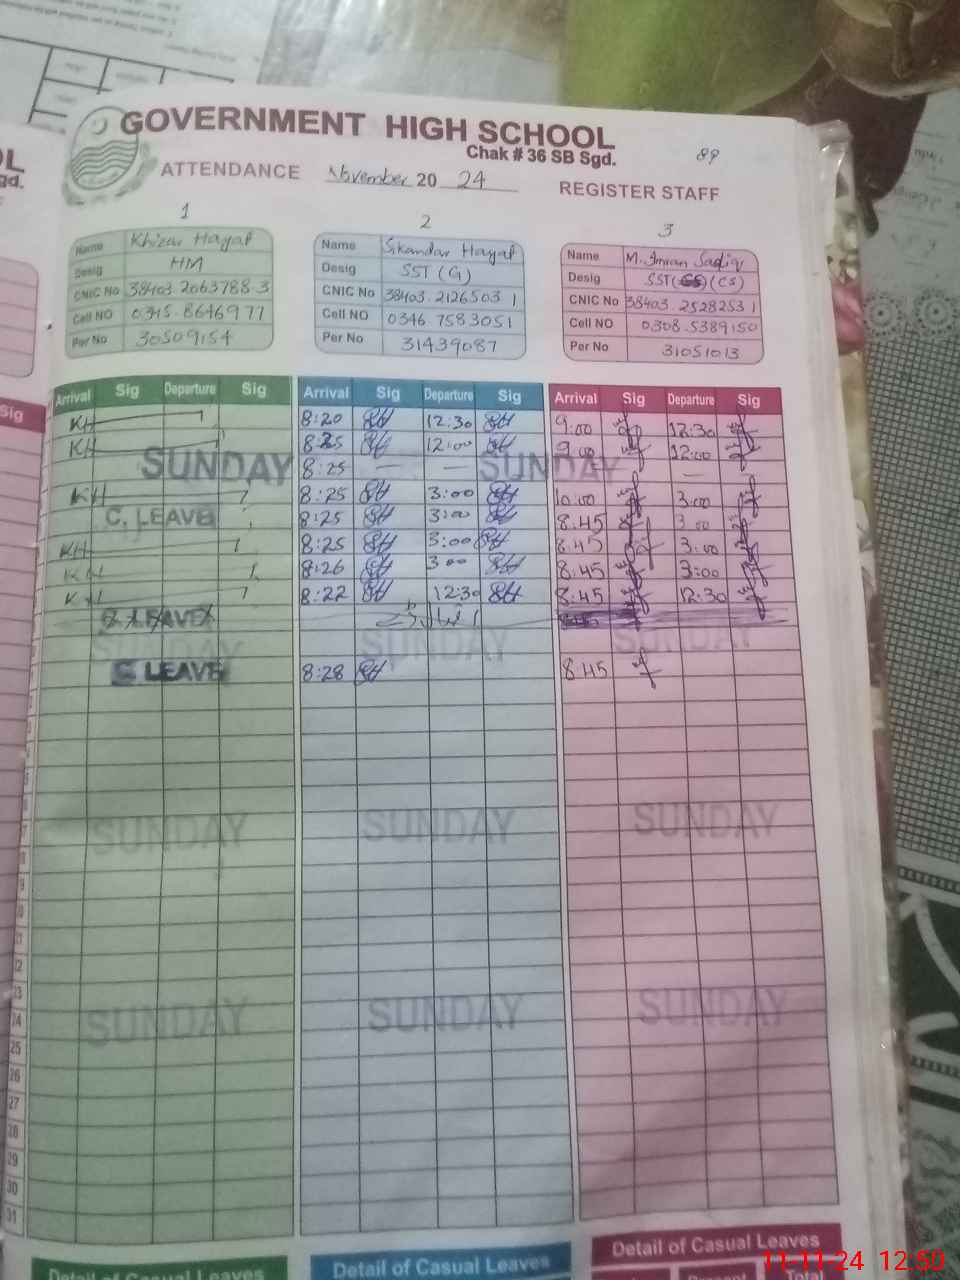 OL
gd.
GOVERNMENT HIGH SCHOOL
Chak # 36 SB Sgd.
89
ATTENDANCE November 20 24 REGISTER STAFF
1 2 3
Name Khizar Hayat Name Sikandar Hayat Name M. Imran Sadiq
Desig HM Desig SST (G) Desig SST (CS)
CNIC No 38403 2063788 3 CNIC No 38403.2126503 1 CNIC No 38403.2528253 1
Cell NO 0345.8646977 Cell NO 0346 7583051 Cell NO 0308.5389150
Per No 30509154 Per No 31439087 Per No 31051013
Sig
Arrival Sig Departure Sig Arrival Sig Departure Sig Arrival Sig Departure Sig
KH 8:20 12:30 9:00 12:30
KH 8:25 12:00 9:00 12:00
SUNDAY 8:25 — — SUNDAY —
KH 8:25 3:00 10:00 3:00
C. LEAVE 8:25 3:00 8.45 3:00
KH 8:25 3:00 8:45 3:00
KH 8:26 3:00 8.45 3:00
KH 8:22 12:30 8:45 12:30
LEAVE
SUNDAY SUNDAY SUNDAY
C. LEAVE 8:28 8:45
SUNDAY SUNDAY SUNDAY
SUNDAY SUNDAY SUNDAY
25
26
27
28
29
30
31
Detail of Casual Leaves Detail of Casual Leaves Detail of Casual Leaves
Present Total
11-11-24 12:50